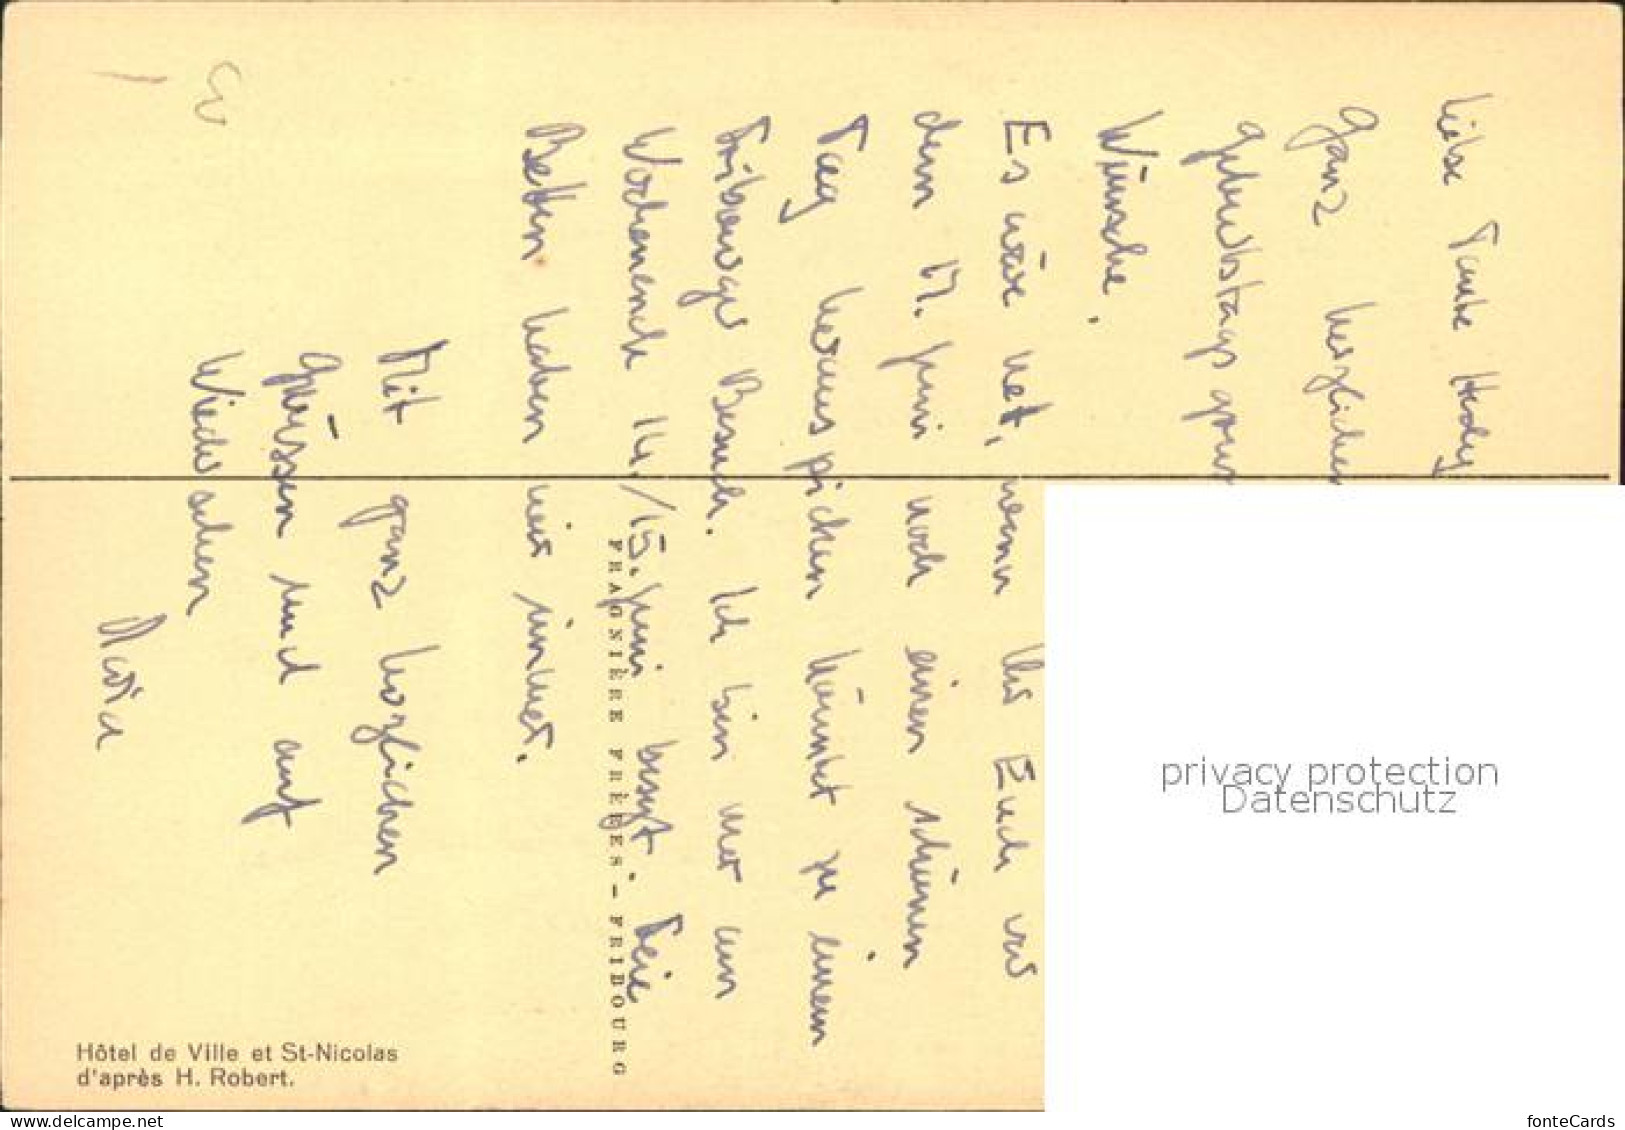 Liebe Tante Hedy
Ganz herzlichen
geburtstags
Wünsche.
Es wäre net, wenn Ihr Euch vor
dem 17. Juni noch einen schönen
Tag herauspicken könntet zu einem
Fribourger Besuch. Ich bin nur am
Wochenende 14./15. Juni besetzt.
Betten haben wir immer.
Mit ganz herzlichen
Grüssen und auf
Wiedersehen
Maria
FRAGNIÈRE FRÈRES – FRIBOURG
Hôtel de Ville et St-Nicolas
d'après H. Robert.
privacy protection
Datenschutz
www.delcampe.net
fonteCards